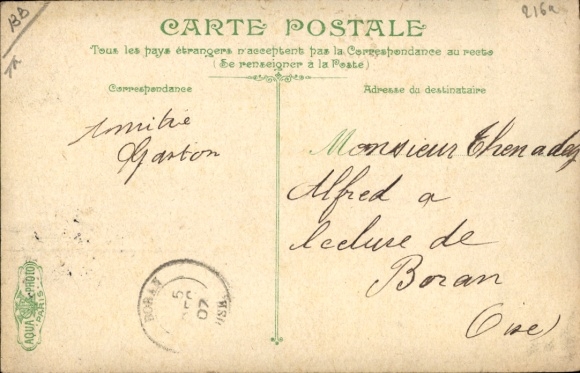 BB
CARTE POSTALE
Tous les pays étrangers n'acceptent pas la Correspondance au recto
(Se renseigner à la Poste)
Correspondance
Adresse du destinataire
Amitié
Gaston
Monsieur Thenadey
Alfred a
lecluse de
Boran
(Oise)
BORAN
5
07
OISE
AQUA PHOTO
PARIS